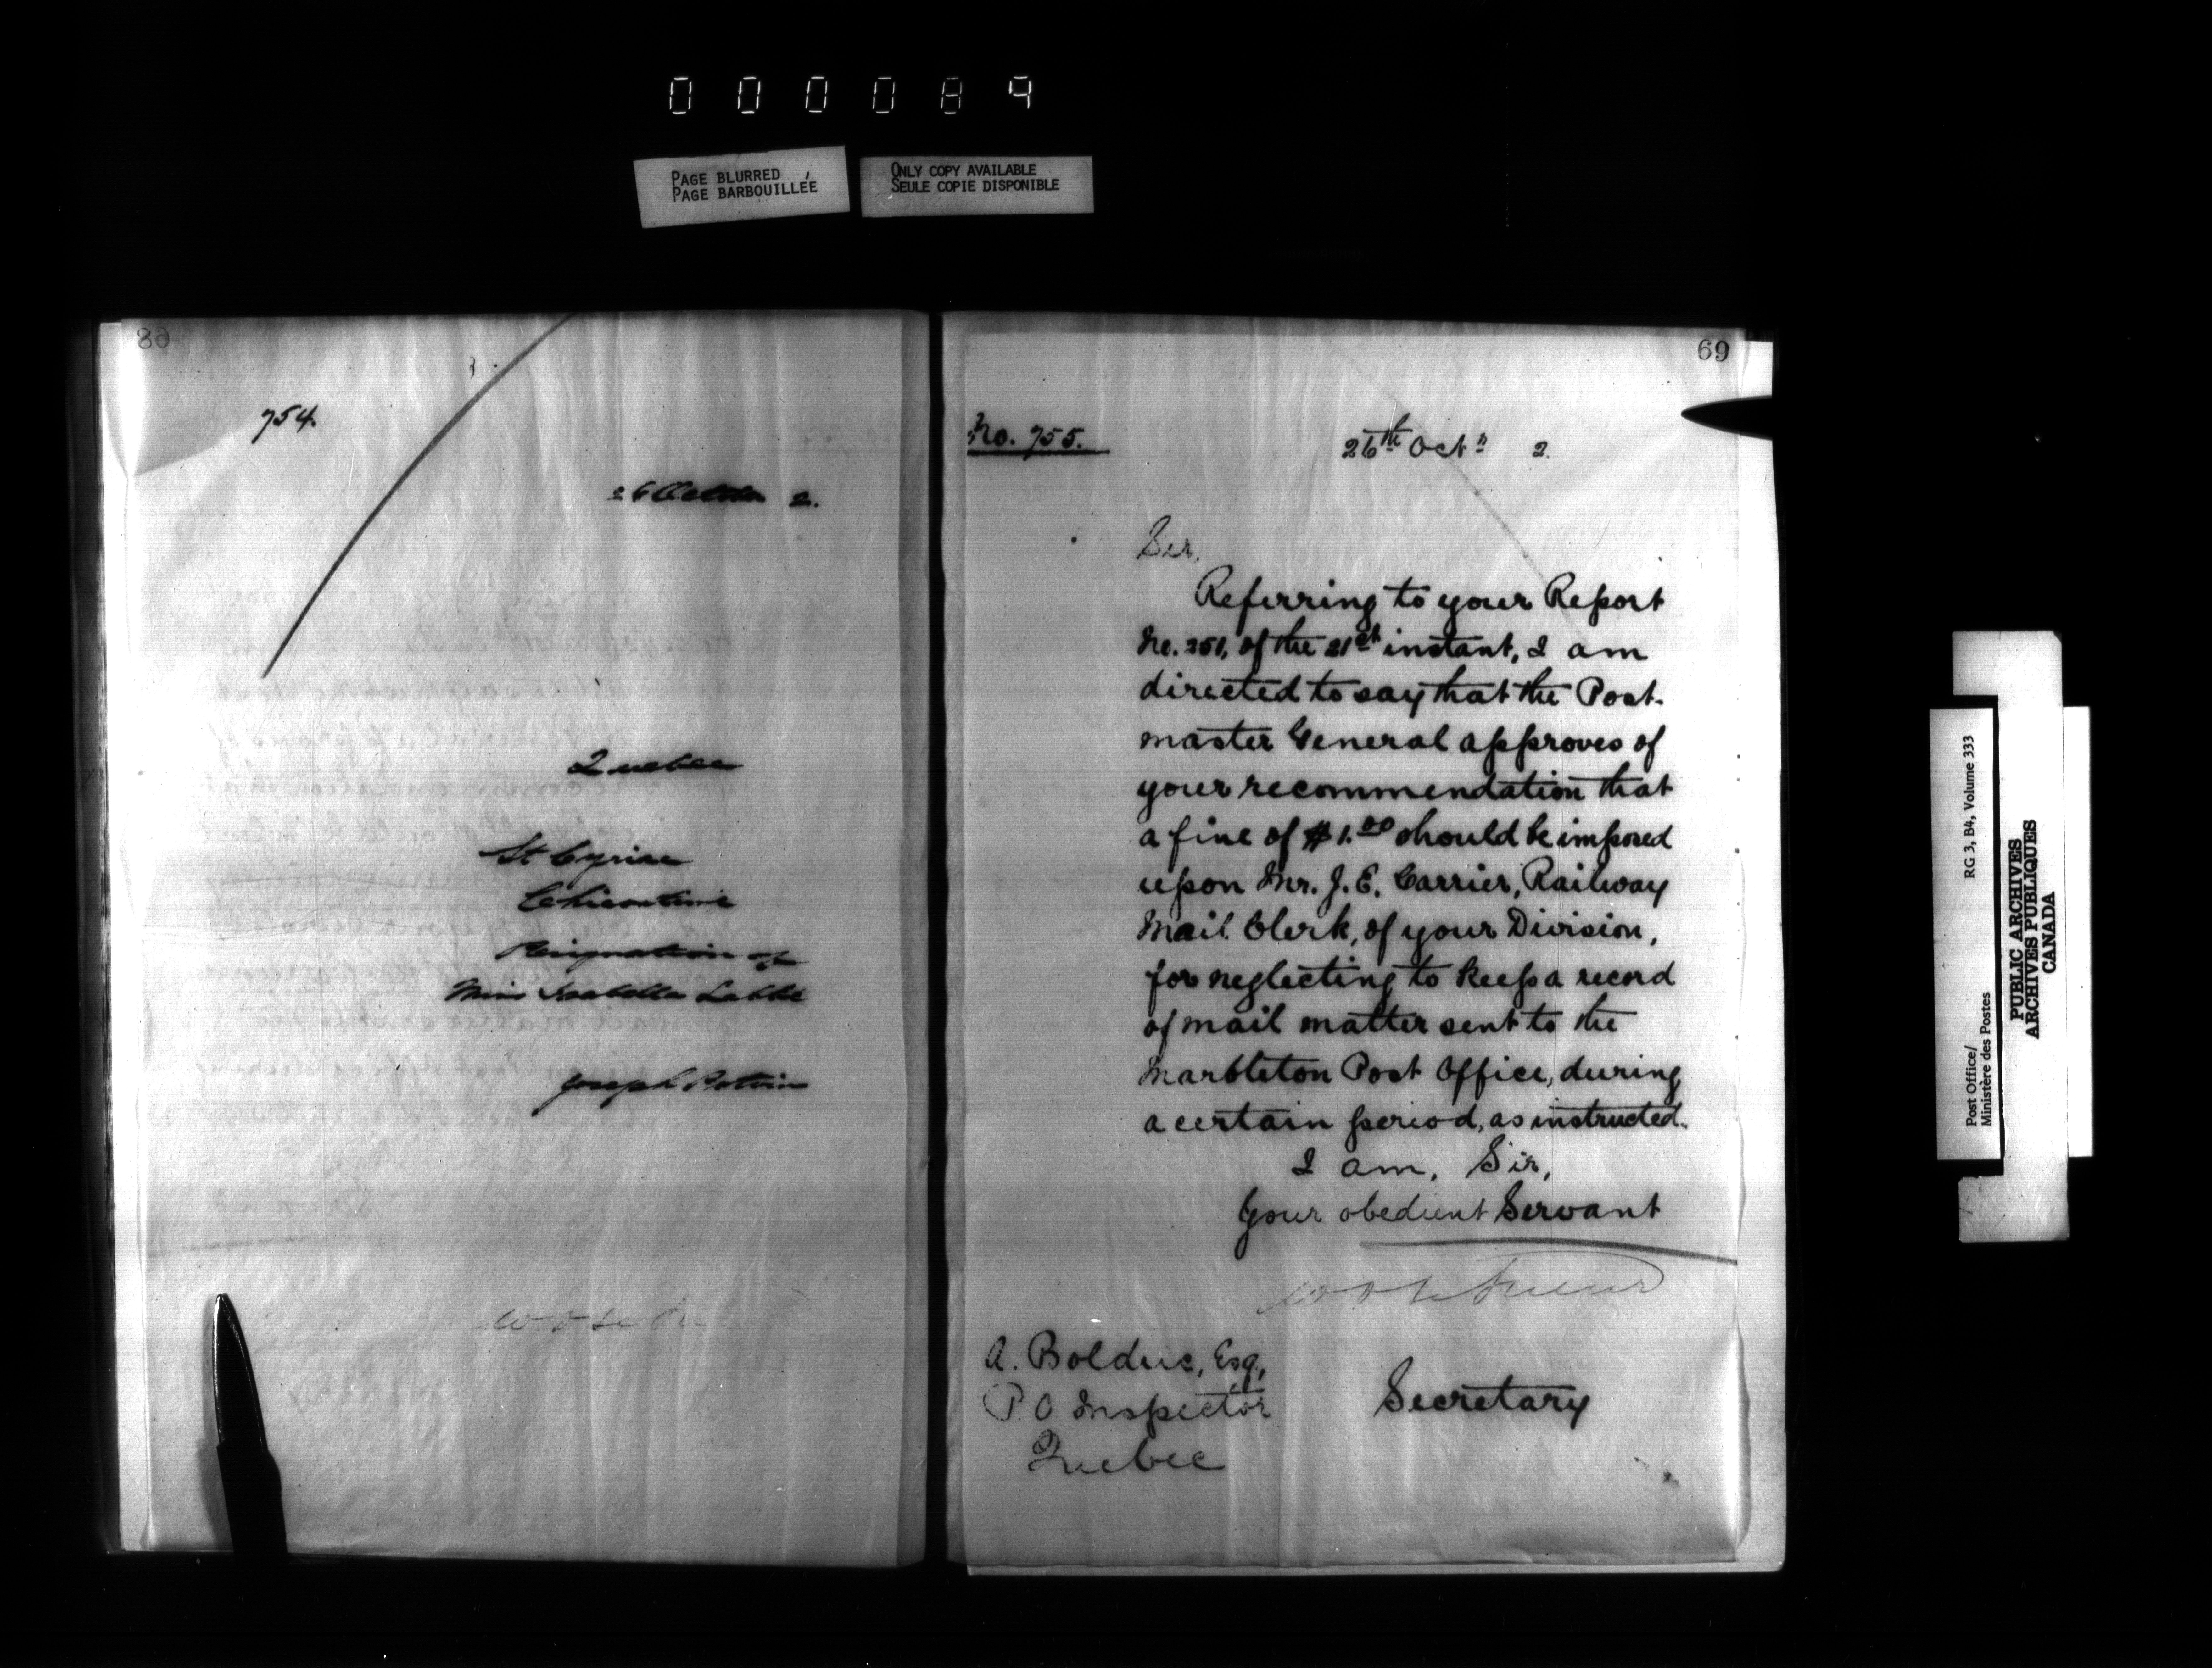 000089
PAGE BLURRED
PAGE BARBOUILLÉE
ONLY COPY AVAILABLE
SEULE COPIE DISPONIBLE
68
754.
26 October 2.
Quebec
St Cyriac
Chicoutimi
Resignation of
Miss Isabella Labbé
Joseph Potvin
69
No. 755.
26th Octr 2.
Sir,
Referring to your Report
No. 251, of the 21st instant, I am
directed to say that the Post-
master General approves of
your recommendation that
a fine of $1.00 should be imposed
upon Mr. J. E. Carrier, Railway
Mail Clerk, of your Division,
for neglecting to keep a record
of mail matter sent to the
Marbleton Post Office, during
a certain period, as instructed.
I am, Sir,
Your obedient Servant
Secretary
A. Bolduc, Esq.,
P O Inspector
Quebec
Post Office/
Ministère des Postes
RG 3, B4, Volume 333
PUBLIC ARCHIVES
ARCHIVES PUBLIQUES
CANADA